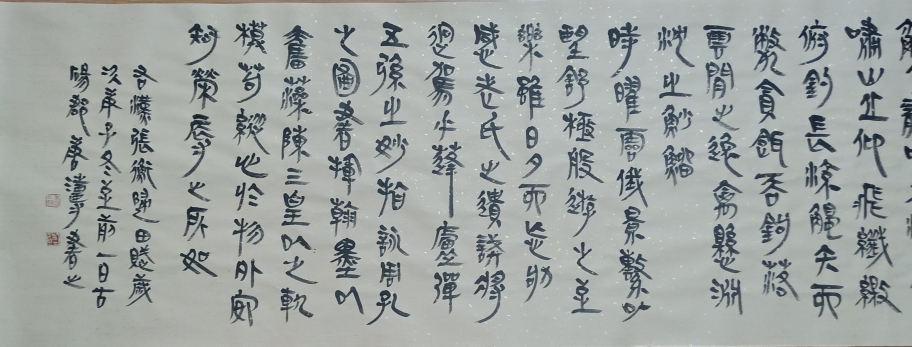 嘯山丘仰飛纖繳
俯釣長流觸矢而
斃貪餌吞鉤落
雲間之逸禽懸淵
沈之魦鰡
時曜靈俄景繫以
望舒極般遊之至
樂雖日夕而忘劬
感老氏之遺誡將
迴駕乎蓬廬彈
五絃之妙指詠周孔
之圖書揮翰墨以
奮藻陳三皇以之軌
模苟縱心於物外安
知榮辱之所如
右漢張衡歸田賦歲
次子冬至前一日古
書之